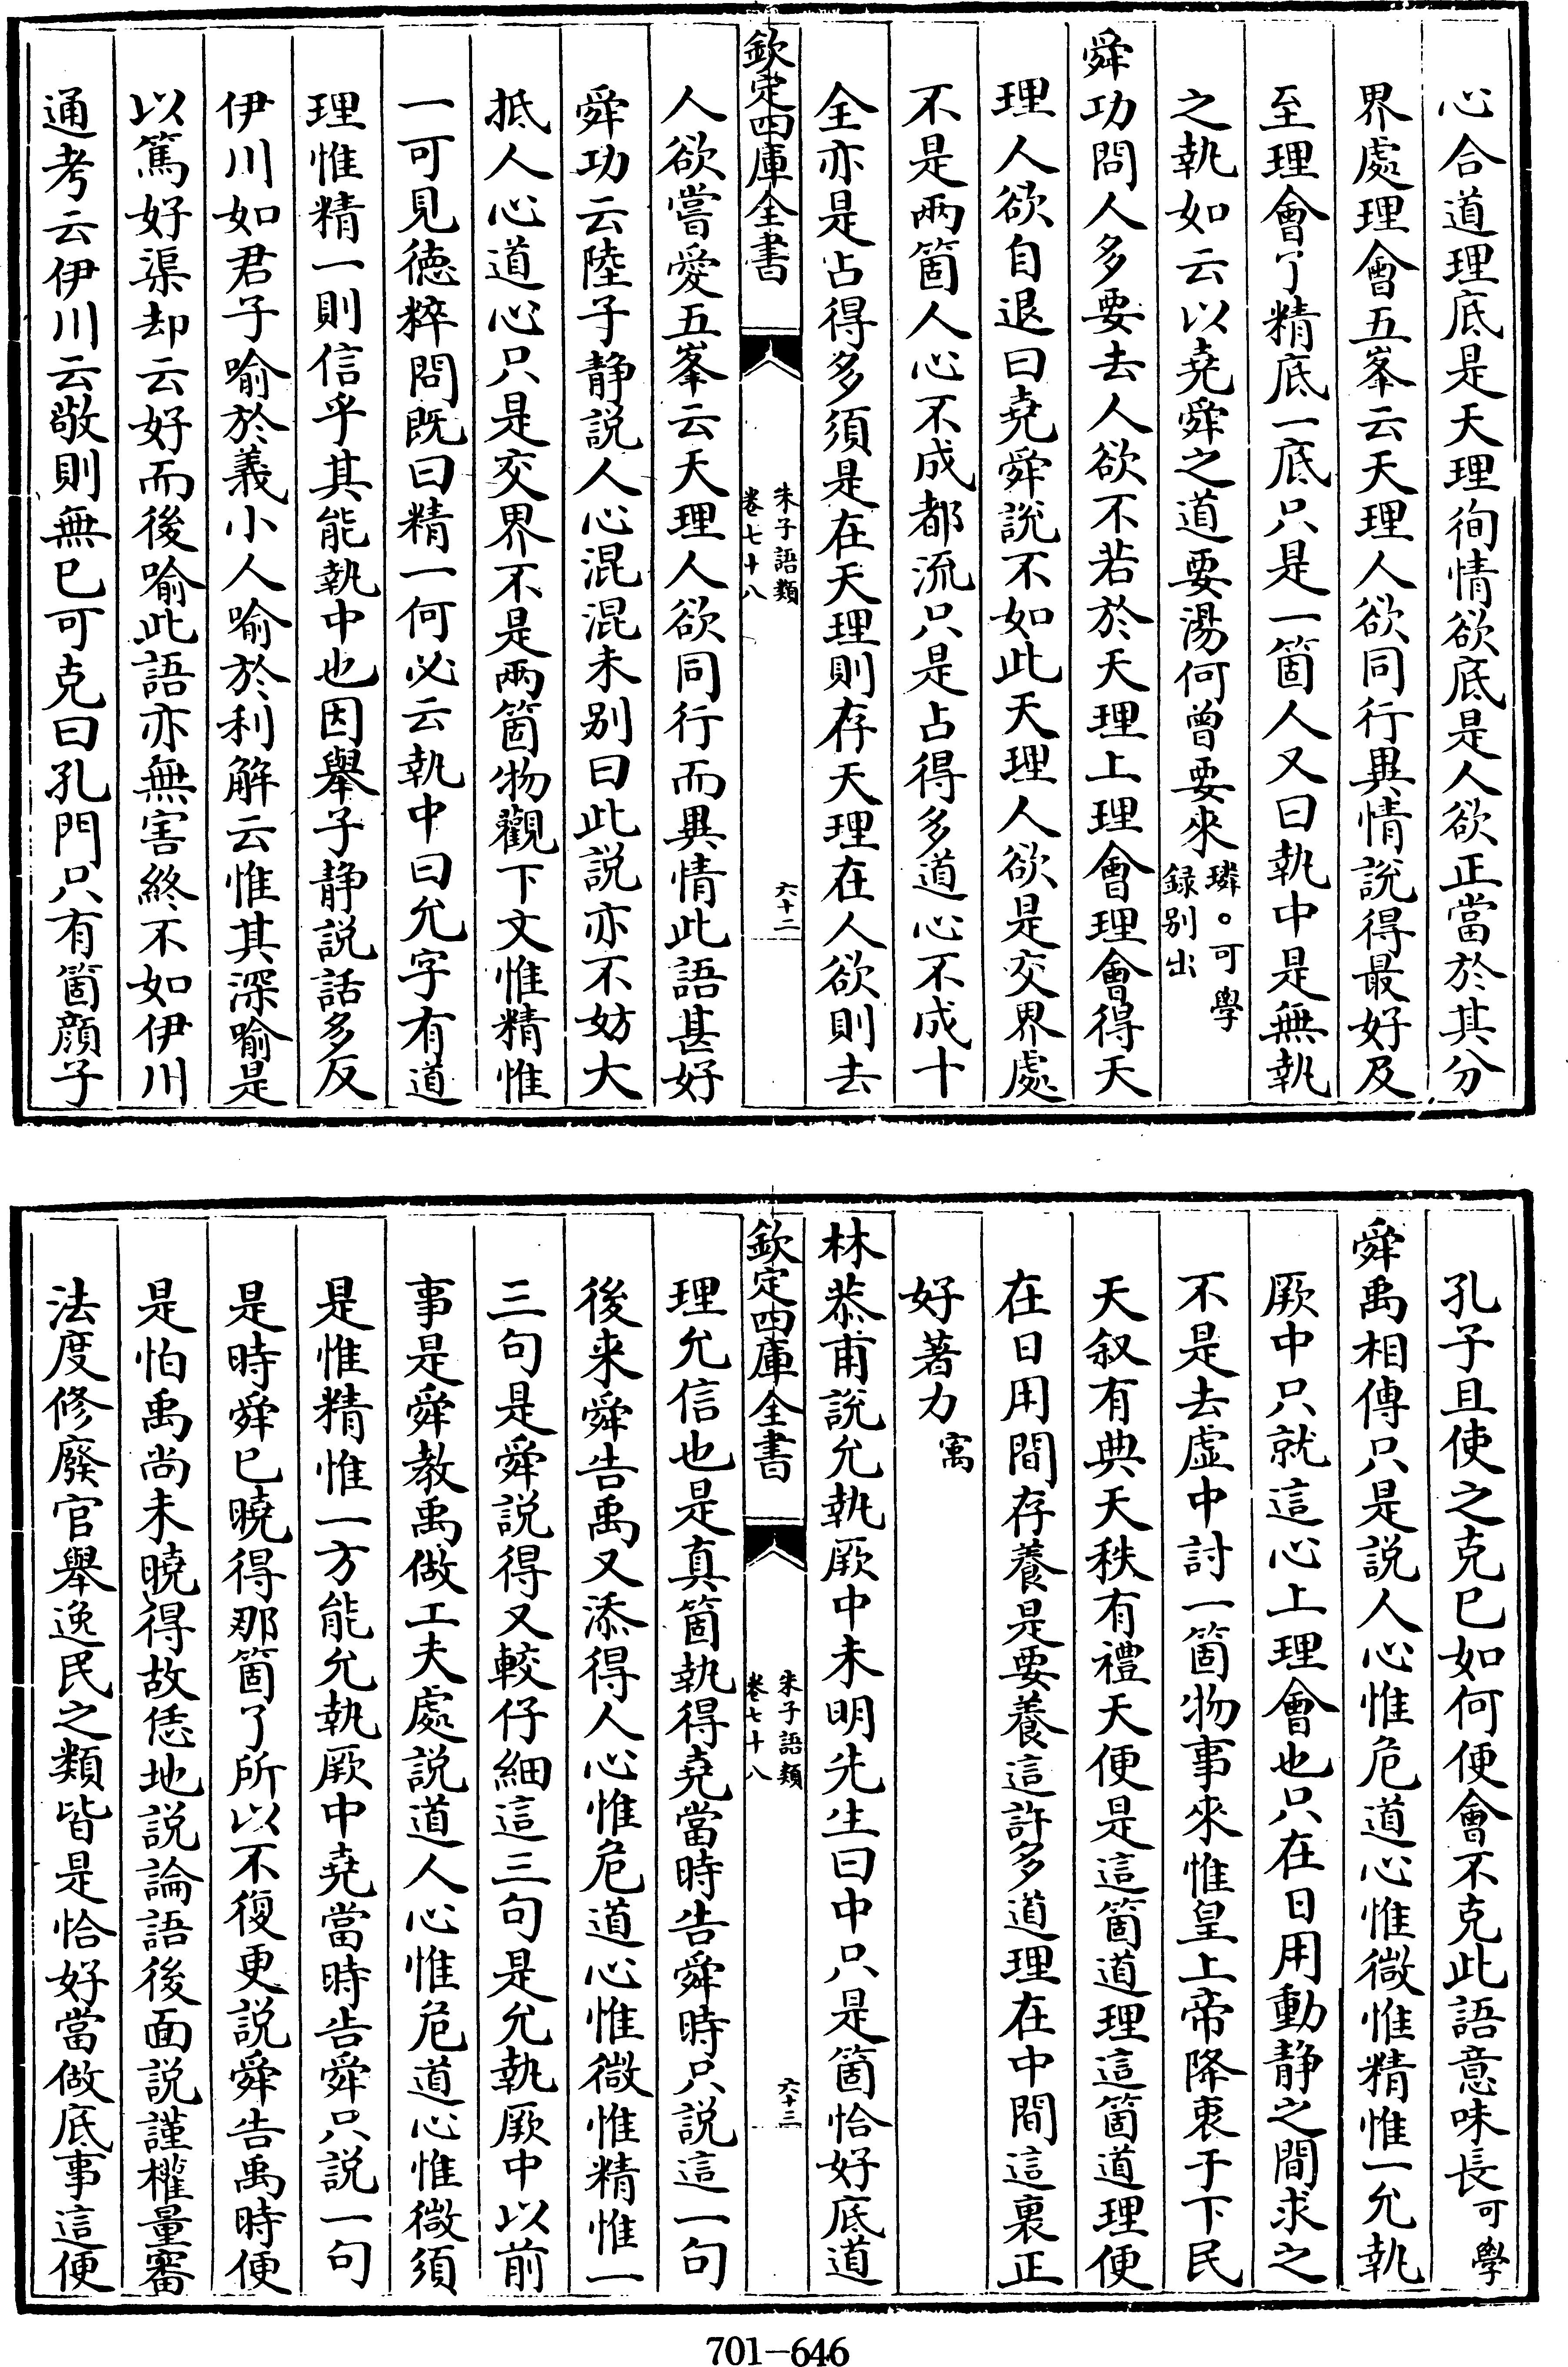 心合道理底是天理徇情欲底是人欲正當於其分
界處理會五峯云天理人欲同行異情說得最好及
至理會了精底一底只是一箇人又曰執中是無執
之執如云以堯舜之道要湯何曾要來璘○可學録别出
舜功問人多要去人欲不若於天理上理會理會得天
理人欲自退曰堯舜說不如此天理人欲是交界處
不是兩箇人心不成都流只是占得多道心不成十
全亦是占得多須是在天理則存天理在人欲則去
欽定四庫全書
朱子語類
卷七十八
六十二
人欲嘗愛五峯云天理人欲同行而異情此語甚好
舜功云陸子静説人心混混未别曰此説亦不妨大
抵人心道心只是交界不是兩箇物觀下文惟精惟
一可見德粹問既曰精一何必云執中曰允字有道
理惟精一則信乎其能執中也因舉子静説話多反
伊川如君子喻於義小人喻於利解云惟其深喻是
以篤好渠却云好而後喻此語亦無害終不如伊川
通考云伊川云敬則無已可克曰孔門只有箇顔子
孔子且使之克已如何便會不克此語意味長可學
舜禹相傳只是説人心惟危道心惟微惟精惟一允執
厥中只就這心上理會也只在日用動静之間求之
不是去虛中討一箇物事來惟皇上帝降衷于下民
天叙有典天秩有禮天便是這箇道理這箇道理便
在日用間存養是要養這許多道理在中間這裏正
好著力寓
林恭甫說允執厥中未明先生曰中只是箇恰好底道
欽定四庫全書
朱子語類
卷七十八
六十三
理允信也是真箇執得堯當時告舜時只説這一句
後来舜告禹又添得人心惟危道心惟微惟精惟一
三句是舜説得又較仔細這三句是允執厥中以前
事是舜教禹做工夫處説道人心惟危道心惟微須
是惟精惟一方能允執厥中堯當時告舜只説一句
是時舜已曉得那箇了所以不復更説舜告禹時便
是怕禹尚未曉得故恁地説論語後面説謹權量審
法度修廢官舉逸民之類皆是恰好當做底事這便
701-646